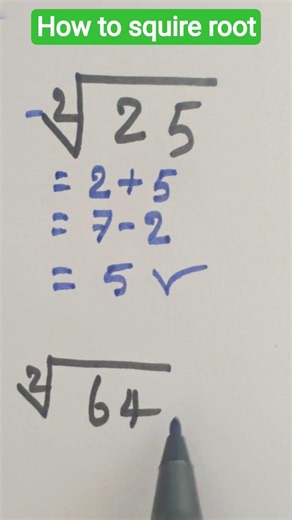 How to squire root
²√25
= 2 + 5
= 7 - 2
= 5 ✓
²√64